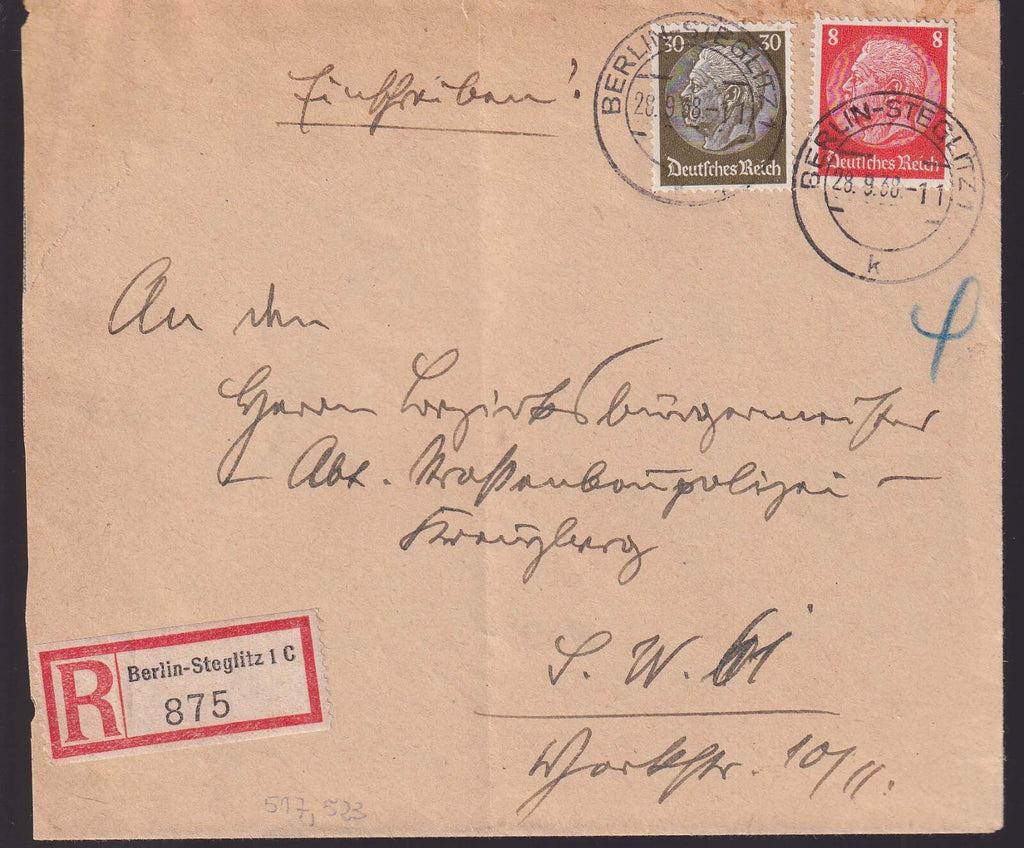 Einschreiben!
30 30
Deutsches Reich
8 8
Deutsches Reich
BERLIN-STEGLITZ 1
28.9.38.-11
BERLIN-STEGLITZ 1
28.9.38.-11
k
An den
Herrn Bezirksbürgermeister
– Abt. Straßenbaupolizei –
Kreuzberg
S. W. 61
Yorkstr. 10/11.
R Berlin-Steglitz 1 C
875
517, 523